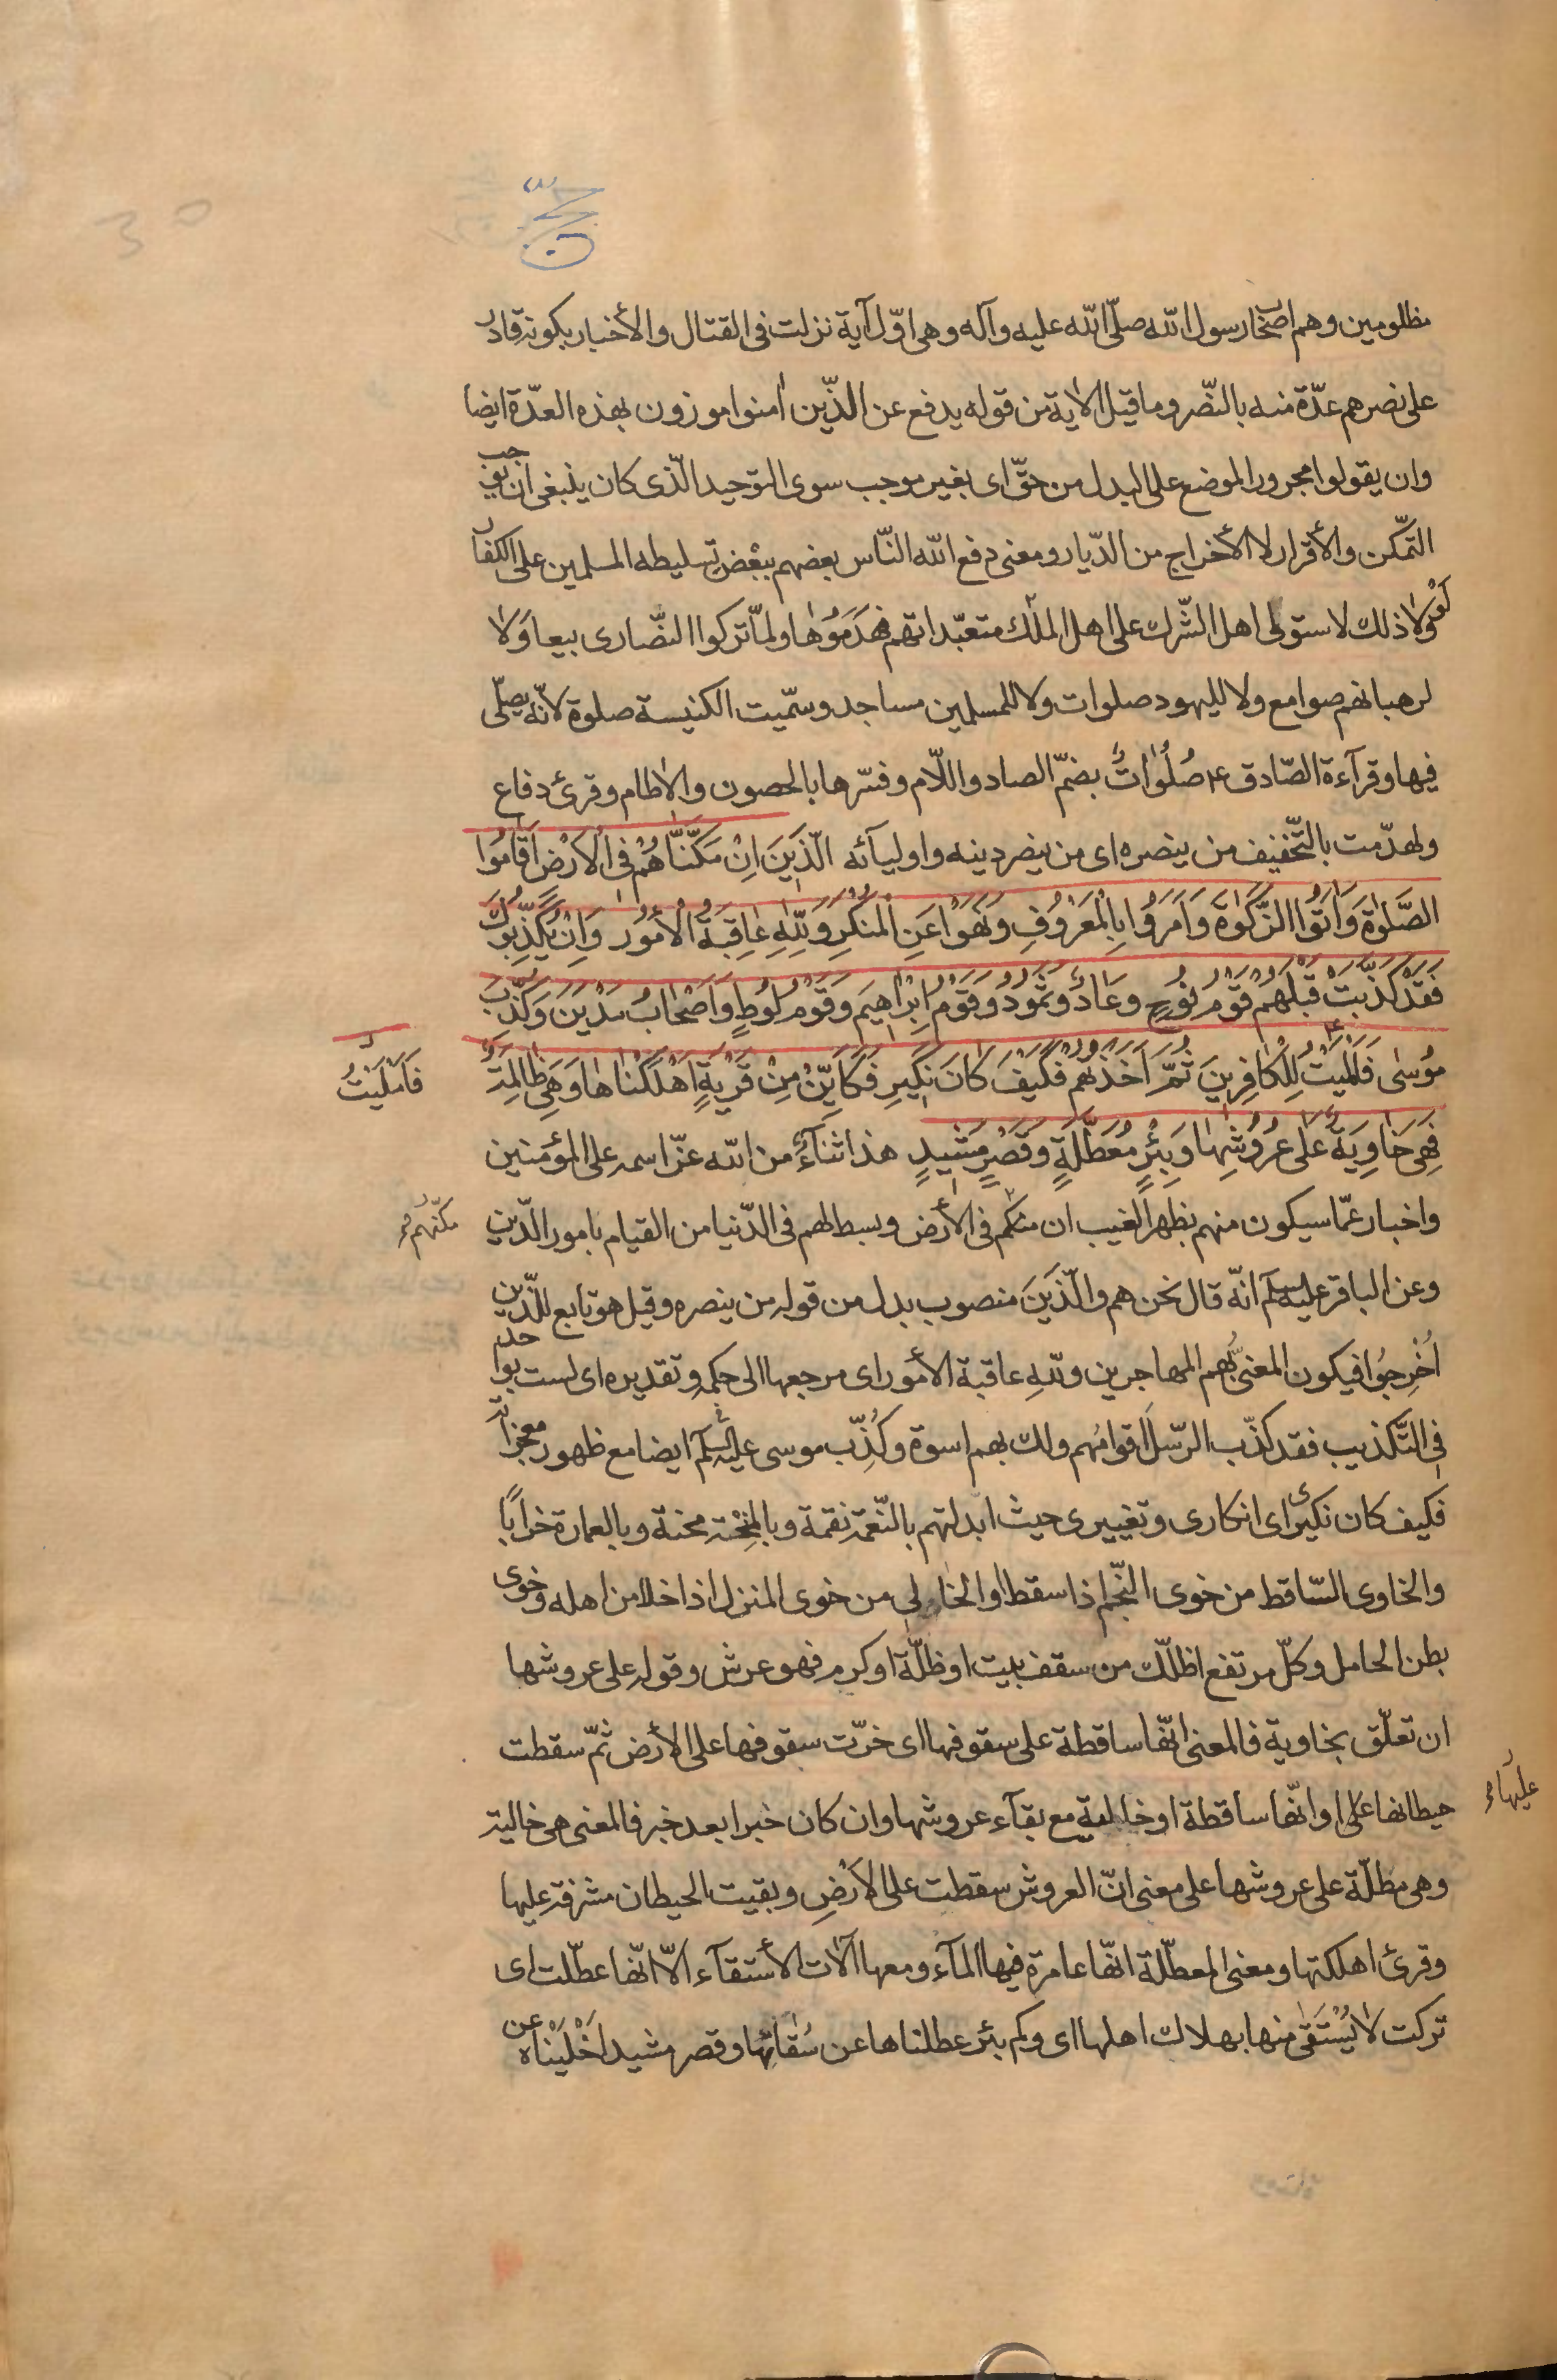 حج
مظلومين وهم اصحٰاب رسول اللّه صلّى اللّه عليه وآله وهى اوّل آية نزلت فى القتال والأخبار بكونه قادر
على نصرهم عدّة منه بالنّصر وما قيل الاٰية من قوله يدفع عن الذّين اٰمنوا موزون بهذه العدّة ايضا
وان يقولوا مجرور الموضع على البدل من حقّ اى بغير موجب سوى التوّحيد الّذى كان ينبغى ان يوجب
التمّكن والأقرار لا الأخراج من الدّيار ومعنى دفع اللّه النّاس بعضهم ببعْضٍ تسليطه المسلمين على الكفار
فَلَوْلاٰ ذلك لاستولى اهل الشّرك على اهل الملل متعبّداتهم فهَدَمُوهٰا ولماّ تركوا النّصارى بيعا وَلاٰ
لرهبانهم صوامع ولا لليهود صلوات ولا للمسلمين مساجد وسمّيت الكنيسة صلوة لانّه يصلّى
فيها وقرآءة الصّادق ع صُلُوٰاتٌ بضمّ الصاد واللّام وفسّرها بالحصون والاٰطام وقرئ دفاع
ولهدّمت بالتّخفيف من ينصره اى من ينصر دينه واوليآئه الّذَيِنَ اِنْ مَكَّنَّاهُمْ فِى الْاَرْضِ اَقٰامُوا
الصَّلوٰةَ وَاٰتَوُا الزَّكوٰةَ وَاَمَرَوُا بِالْمَعْرُوُفِ وَنَهَوْا عَنِ الْمُنْكَرِ وَلِلّٰهِ عٰاقِبَةُ الْاُمُوُرِ وَاِنْ يُكَذِّبُوكَ
فَقَدْ كَذَّبَتْ قَبْلَهُمْ قَوْمُ نُوُحٍ وَعَادٌ وَثَمُودُ وَقَوْمُ اِبْرٰاهِيمَ وَقَوْمُ لُوُطٍ وَاَصْحٰابُ مَدْيَنَ وَكُذِّبَ
مُوُسٰى فَاَمْلَيْتُ لِلْكٰافِرِينَ ثُمَّ اَخَذْتُهُمْ فَكَيْفَ كَانَ نَكِيرِ فَكَاَيِّنْ مِنْ قَرْيَةٍ اَهْلَكْنٰاهٰا وَهِىَ ظٰالِمَةٌ
فَاَمْلَيْتُ
فَهِىَ خٰاوِيَةٌ عَلٰى عُرُوُشِهٰا وَبِئْرٍ مُعَطَّلَةٍ وَقَصْرٍ مَشيٖدٍ هذا ثنآءٌ من اللّه عزّ اسمه على المؤمنين
واخبار عمّا سيكون منهم بظهر الغيب ان منكم فى الأرض وبسط لهم فى الدّنيا من القيام بامور الدّين
مكنّهم م
وعن الباقر عليه السلم انّه قال نحن هم والّذَيَنَ منصوب بدل من قوله من ينصره وقيل هو تابع للّذين
اُخْرِجُوا فيكون المعنّى بهم المهاجرين وللّهِ عاقبة الأمور اى مرجعها الى حكمه وتقديره اى لست باوحد
فى التّكذيب فقد كذّب الرّسل اقوامُهم ولك بهم اسوة وكُذّب موسى عليه السلم ايضا مع ظهور معجزاته
فكيف كان نكيرى اى انكارى وتغييرى حيث ابدلتهم بالنّعمة نقمة وبالمِنْحة محنة وبالعمارة خرابًا
والخاوى السّاقط من خوى النّجم اذا سقط او الخالى من خوى المنزل اذا خلا من اهله وخوى
بطن الحامل وكلّ مرتفع اظلّك من سقف بيت او ظلّة او كرم فهو عرش وقوله على عروشها
ان تعلّق بخاوية فالمعنى انّها ساقطة على سقوفها اى خرّت سقوفها على الأرض ثمّ سقطت
حيطانها على او انّها ساقطة او خالية مع بقآء عروشها وان كان خبرا بعد خبر فالمعنى هى خالية
عليها م
وهى مظلّة على عروشها على معنى انّ العروش سقطت على الارْضِ وبقيت الحيطان مشرفة عليها
وقرئ اهلكتها ومعنى المعطّلة انّها عامرة فيها المآء ومعها آلات الأستقآء الّا انّها عطّلت اى
تركت لا يُسْتَقٰى منها بهلاك اهلها اى وكم بئر عطلناها عن سُقٰاتِها وقصر مشيد اخْلَيْناه عن